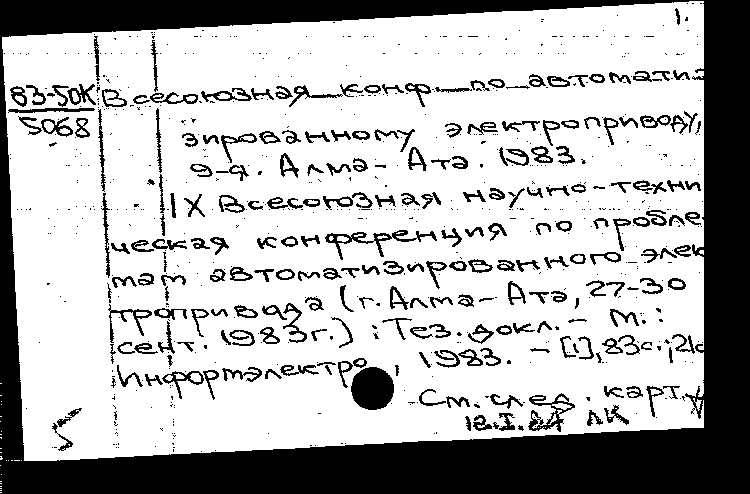 1.
83-50К Всесоюзная конф. по автомати-
5068
зированному электроприводу,
9-я. Алма-Ата. 1983.
IX Всесоюзная научно-техни
ческая конференция по пробле
мам автоматизированного элек
тропривода (г. Алма-Ата, 27-30
сент. 1983г.) : Тез. докл. - М. :
Информэлектро, 1983. - [1], 83с.; 21с
См. след. карт.
5
12.I.84 ЛК